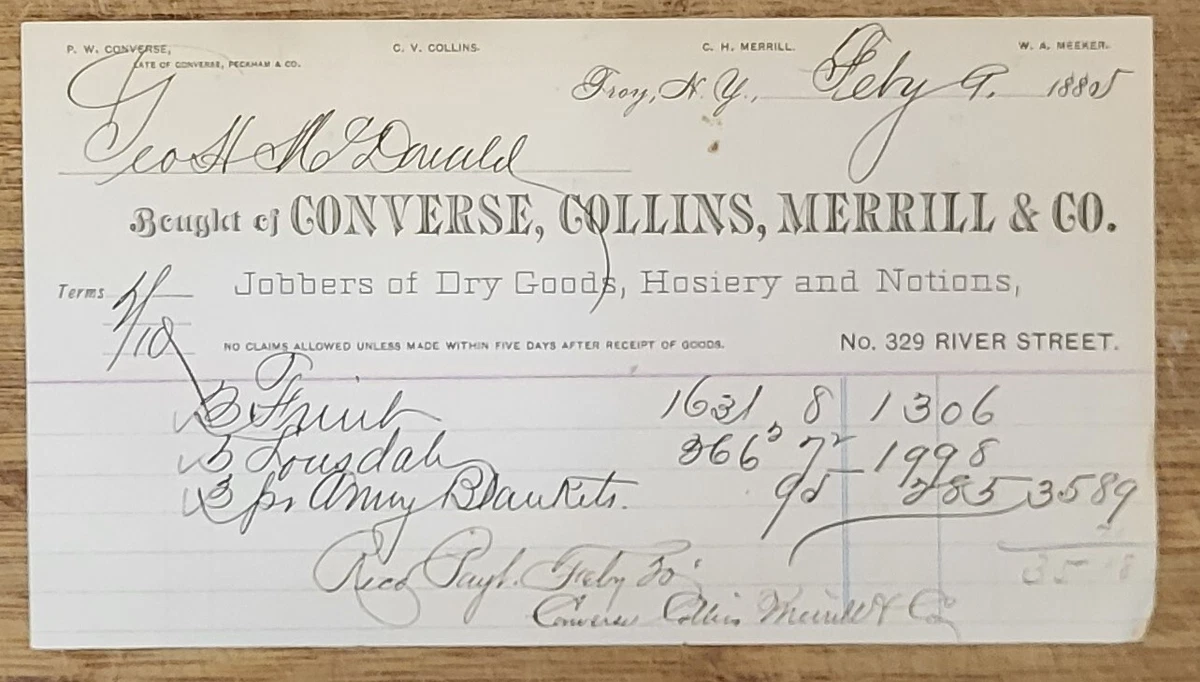 P. W. CONVERSE, C. V. COLLINS. C. H. MERRILL. W. A. MEEKER.
LATE OF CONVERSE, PECKHAM & CO.
Troy, N. Y., Feby 9. 1885
Geo H McDonald
Bought of CONVERSE, COLLINS, MERRILL & CO.
Terms
Jobbers of Dry Goods, Hosiery and Notions,
/10
NO CLAIMS ALLOWED UNLESS MADE WITHIN FIVE DAYS AFTER RECEIPT OF GOODS. No. 329 RIVER STREET.
3 Fruit 163 8 1306
5 Lonsdale 366 7 1998
3 pr Army Blankets. 95 285 3589
Recd Payt. Feby
Converse Collins Merrill & Co